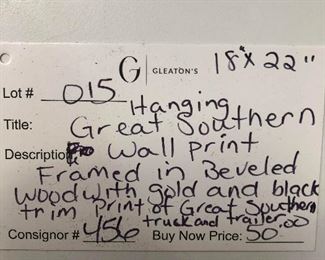 G | GLEATON'S 18" x 22"
Lot # 015
Hanging
Title: Great Southern
Description: Wall print
Framed in Beveled
wood with gold and black
trim Print of Great Southern
truck and trailer
Consignor # 456 Buy Now Price: 50.00